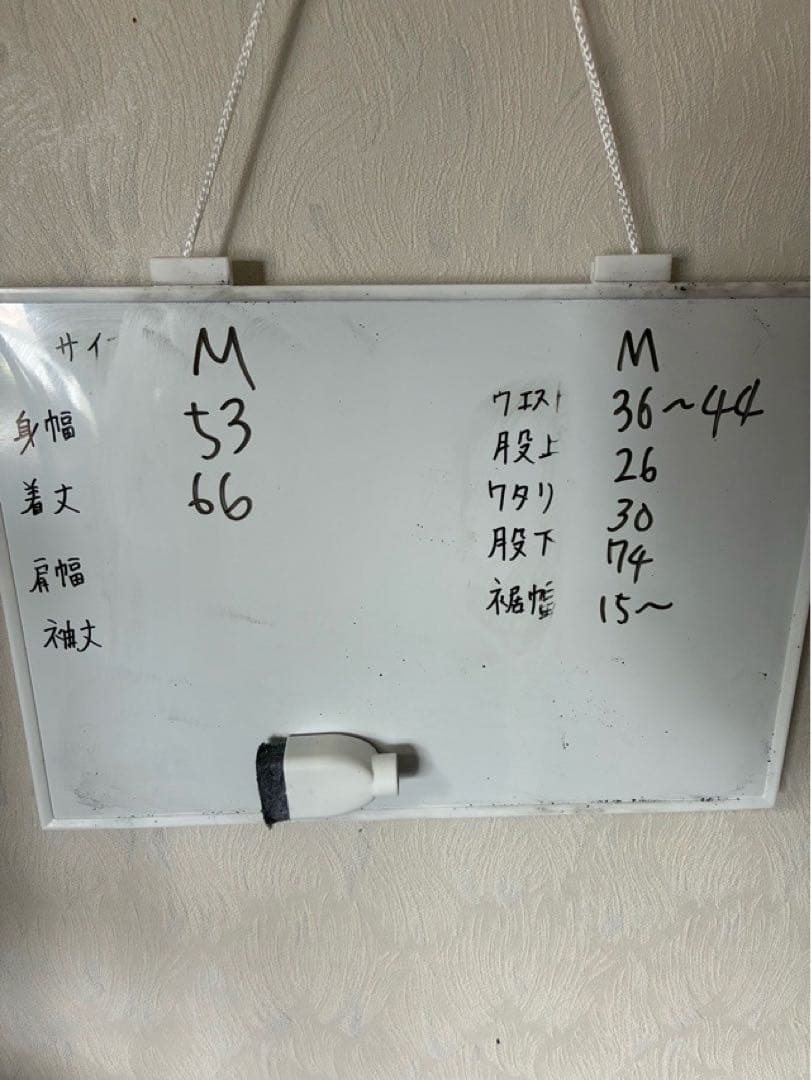 サイ M
身幅 53
着丈 66
肩幅
袖丈
M
ウエスト 36〜44
股上 26
ワタリ 30
股下 74
裾幅 15〜